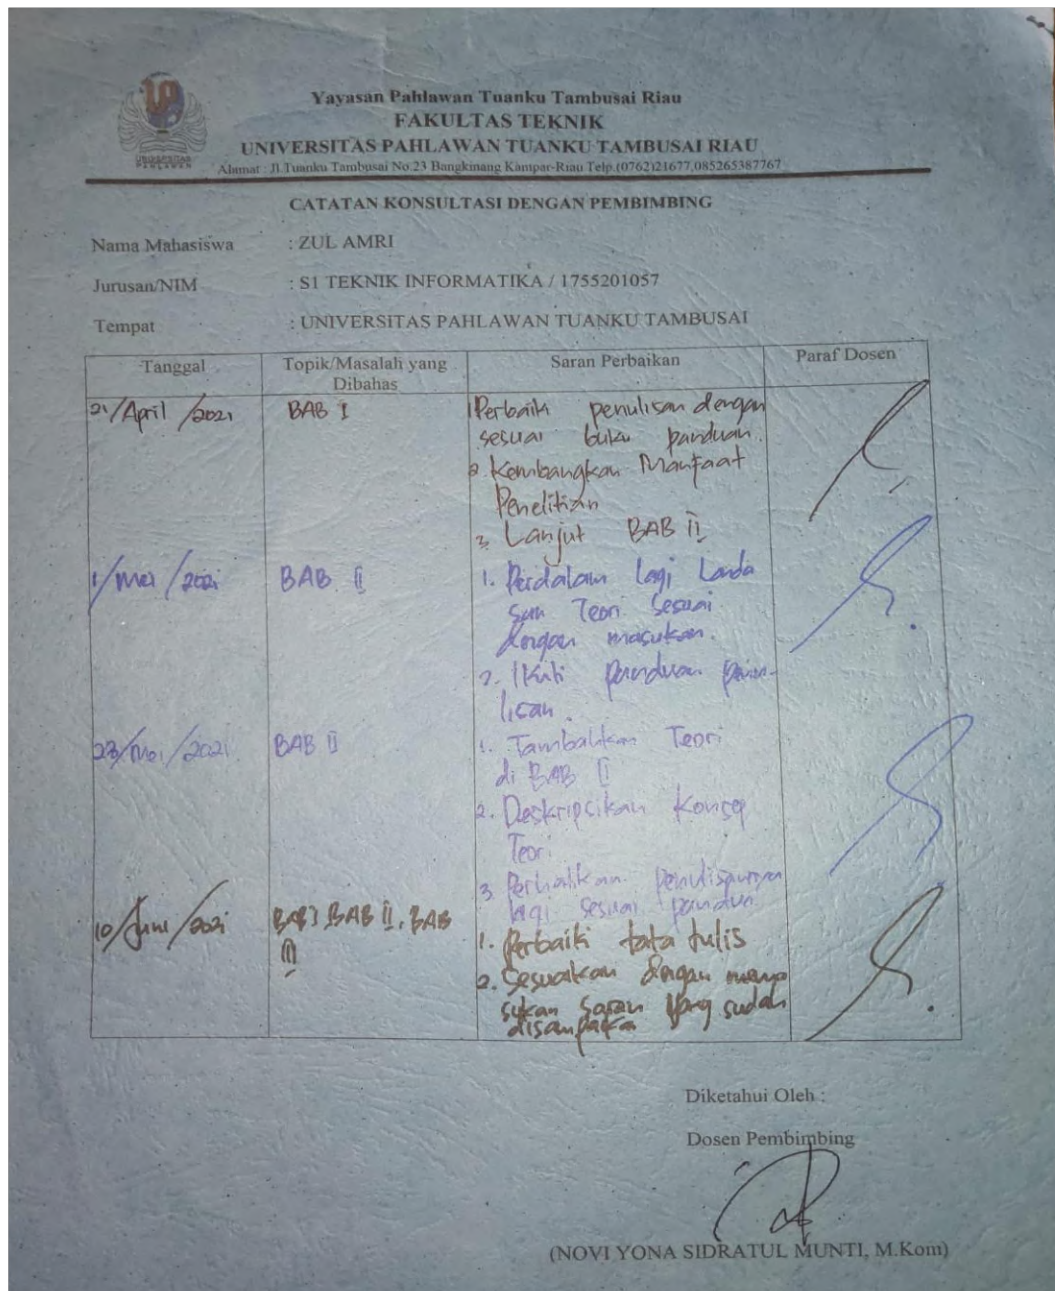 UNIVERSITAS
PAHLAWAN
Yayasan Pahlawan Tuanku Tambusai Riau
FAKULTAS TEKNIK
UNIVERSITAS PAHLAWAN TUANKU TAMBUSAI RIAU
Alamat : Jl.Tuanku Tambusai No.23 Bangkinang Kampar-Riau Telp.(0762)21677,085265387767
CATATAN KONSULTASI DENGAN PEMBIMBING
Nama Mahasiswa : ZUL AMRI
Jurusan/NIM : S1 TEKNIK INFORMATIKA / 1755201057
Tempat : UNIVERSITAS PAHLAWAN TUANKU TAMBUSAI
Tanggal Topik/Masalah yang Dibahas Saran Perbaikan Paraf Dosen
21/April/2021 BAB I 1 Perbaiki penulisan dengan
sesuai buku panduan.
2. Kembangkan Manfaat
Penelitian
3. Lanjut BAB II
1/Mei/2021 BAB II 1. Perdalam lagi Landa
san Teori sesuai
dengan masukan.
2. Ikuti panduan penu-
lisan.
23/Mei/2021 BAB II 1. Tambahkan Teori
di BAB II
2. Deskripsikan Konsep
Teori
3. Perhatikan penulisannya
lagi sesuai panduan
10/Juni/2021 BAB I, BAB II, BAB 1. Perbaiki tata tulis
III 2. Sesuaikan dengan
sukan saran yang sudah
disampaika
Diketahui Oleh :
Dosen Pembimbing
(NOVI YONA SIDRATUL MUNTI, M.Kom)